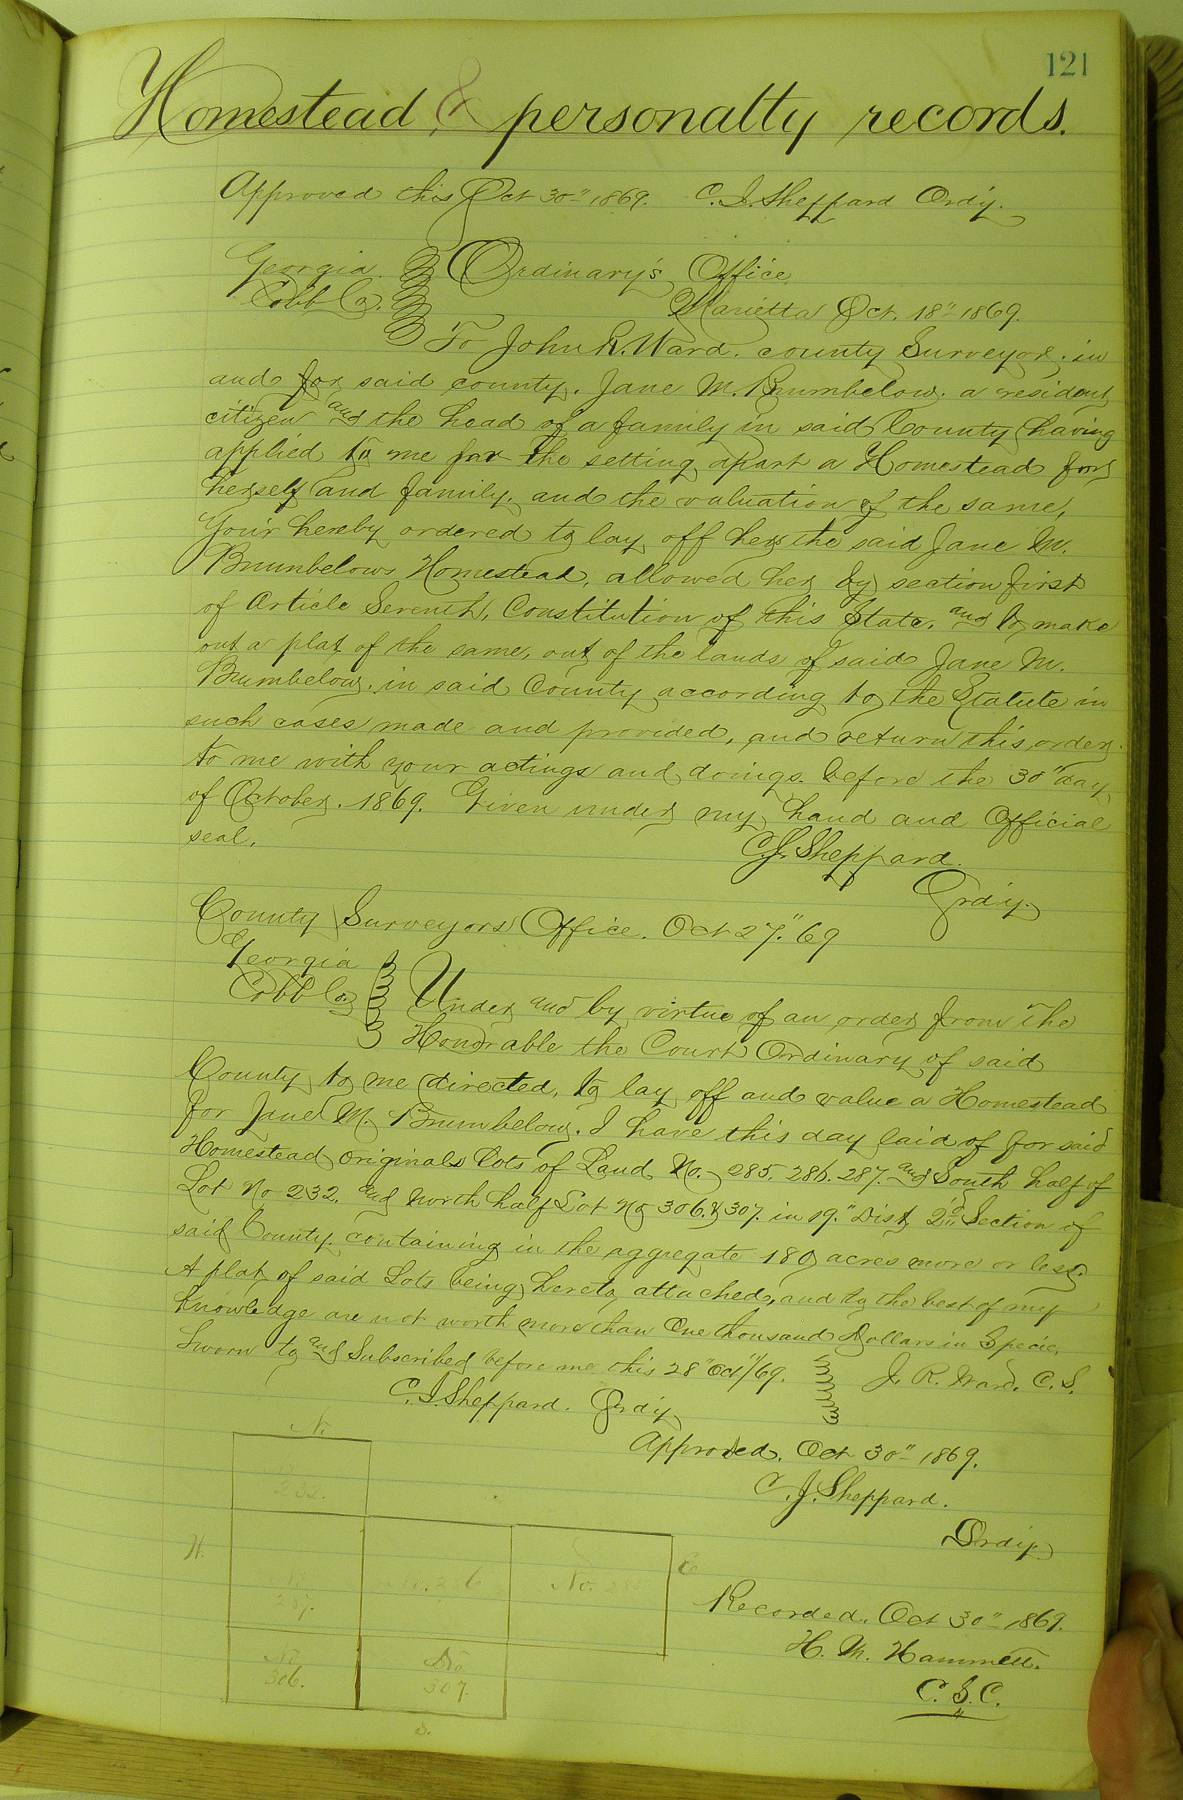 121
Homestead & personalty records.
Approved this Oct 30" 1869. C. J. Sheppard Ordy.
Georgia. Ordinary's Office,
Cobb Co. Marietta Oct. 18" 1869.
To John R. Ward. county Surveyor, in
and for said county. Jane M. Brumbelow. a resident
citizen and the head of a family in said County having
applied to me for the setting apart a Homestead for
herself and family. and the valuation of the same,
Your hereby ordered to lay off her the said Jane M.
Brumbelows Homestead, allowed her by section first
of Article Seventh, Constitution of this State, and to make
out a plat of the same, out of the lands of said Jane M.
Brumbelow. in said County according to the Statute in
such cases made and provided, and return this order
to me with your actings and doings. before the 30" day
of October. 1869. Given under my hand and Official
seal.
C. J. Sheppard.
Ordy.
County Surveyors Office. Oct 27." 69
Georgia
Cobb Co. Under and by virtue of an order from the
Honorable the Court Ordinary of said
County to me directed, to lay off and value a Homestead
for Jane M. Brumbelow. I have this day laid of for said
Homestead originals Lots of Land No. 285. 286. 287. and South half of
Lot No 232. and North half Lot No 306. & 307. in 19." Dist 2nd Section of
said County. containing in the aggregate 180 acres more or less.
A plat of said Lots being hereto attached, and to the best of my
knowledge are not worth more than One thousand Dollars in Specie.
Sworn to and Subscribed before me this 28" Oct/69. J. R. Ward. C. S.
C. J. Sheppard. Ordy
Approved. Oct 30" 1869.
C. J. Sheppard.
Ordy.
N.
232.
W.
287.
No. 286
No. 285
E
No
306.
No
307.
S.
Recorded. Oct 30" 1869.
H. M. Hammett.
C. S. C.